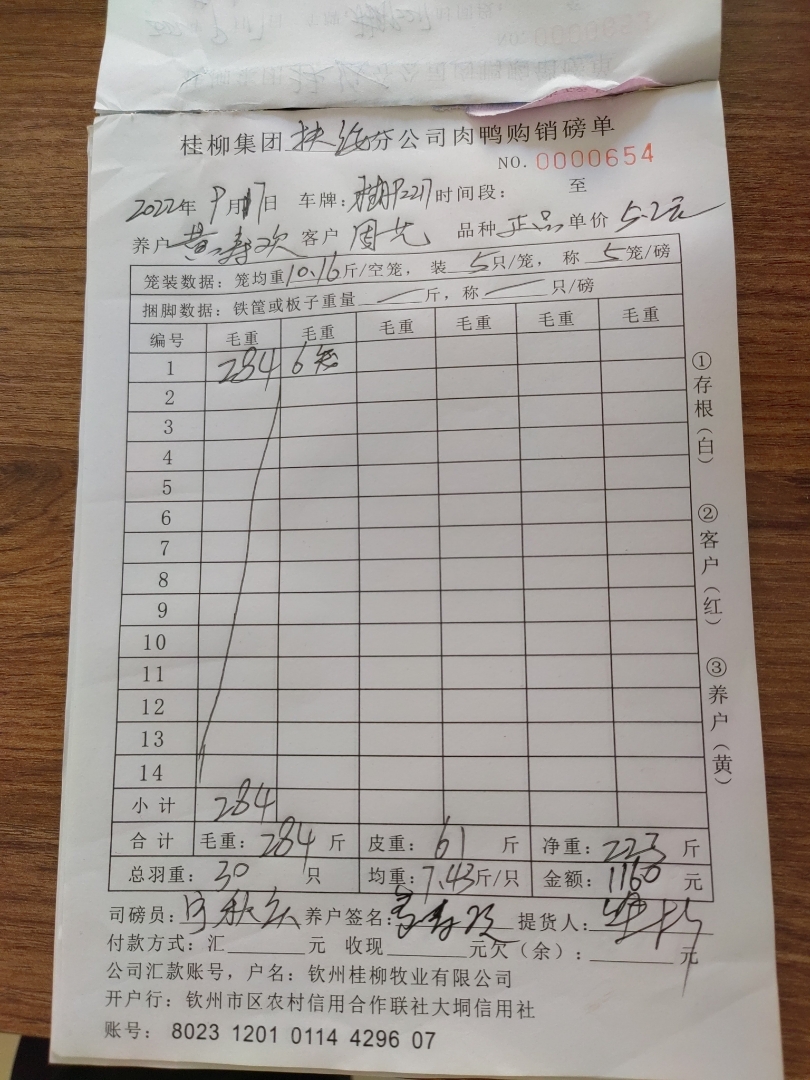 桂柳集团扶绥分公司肉鸭购销磅单
NO. 0000654
2022年 9月17日 车牌： 时间段： 至
养户 黄寿欢 客户 周先 品种 正品 单价 5.2元
笼装数据：笼均重10.16斤/空笼，装 5只/笼，称 5笼/磅
捆脚数据：铁筐或板子重量 斤，称 只/磅
编号 毛重 毛重 毛重 毛重 毛重 毛重
1 284 6笼
2
3
4
5
6
7
8
9
10
11
12
13
14
小计 284
合计 毛重：284 斤 皮重：61 斤 净重：223 斤
总羽重：30 只 均重：7.43斤/只 金额：1160 元
司磅员： 养户签名：黄寿欢 提货人：
付款方式：汇 元 收现 元欠（余）： 元
公司汇款账号，户名：钦州桂柳牧业有限公司
开户行：钦州市区农村信用合作联社大垌信用社
账号： 8023 1201 0114 4296 07
①存根（白）
②客户（红）
③养户（黄）